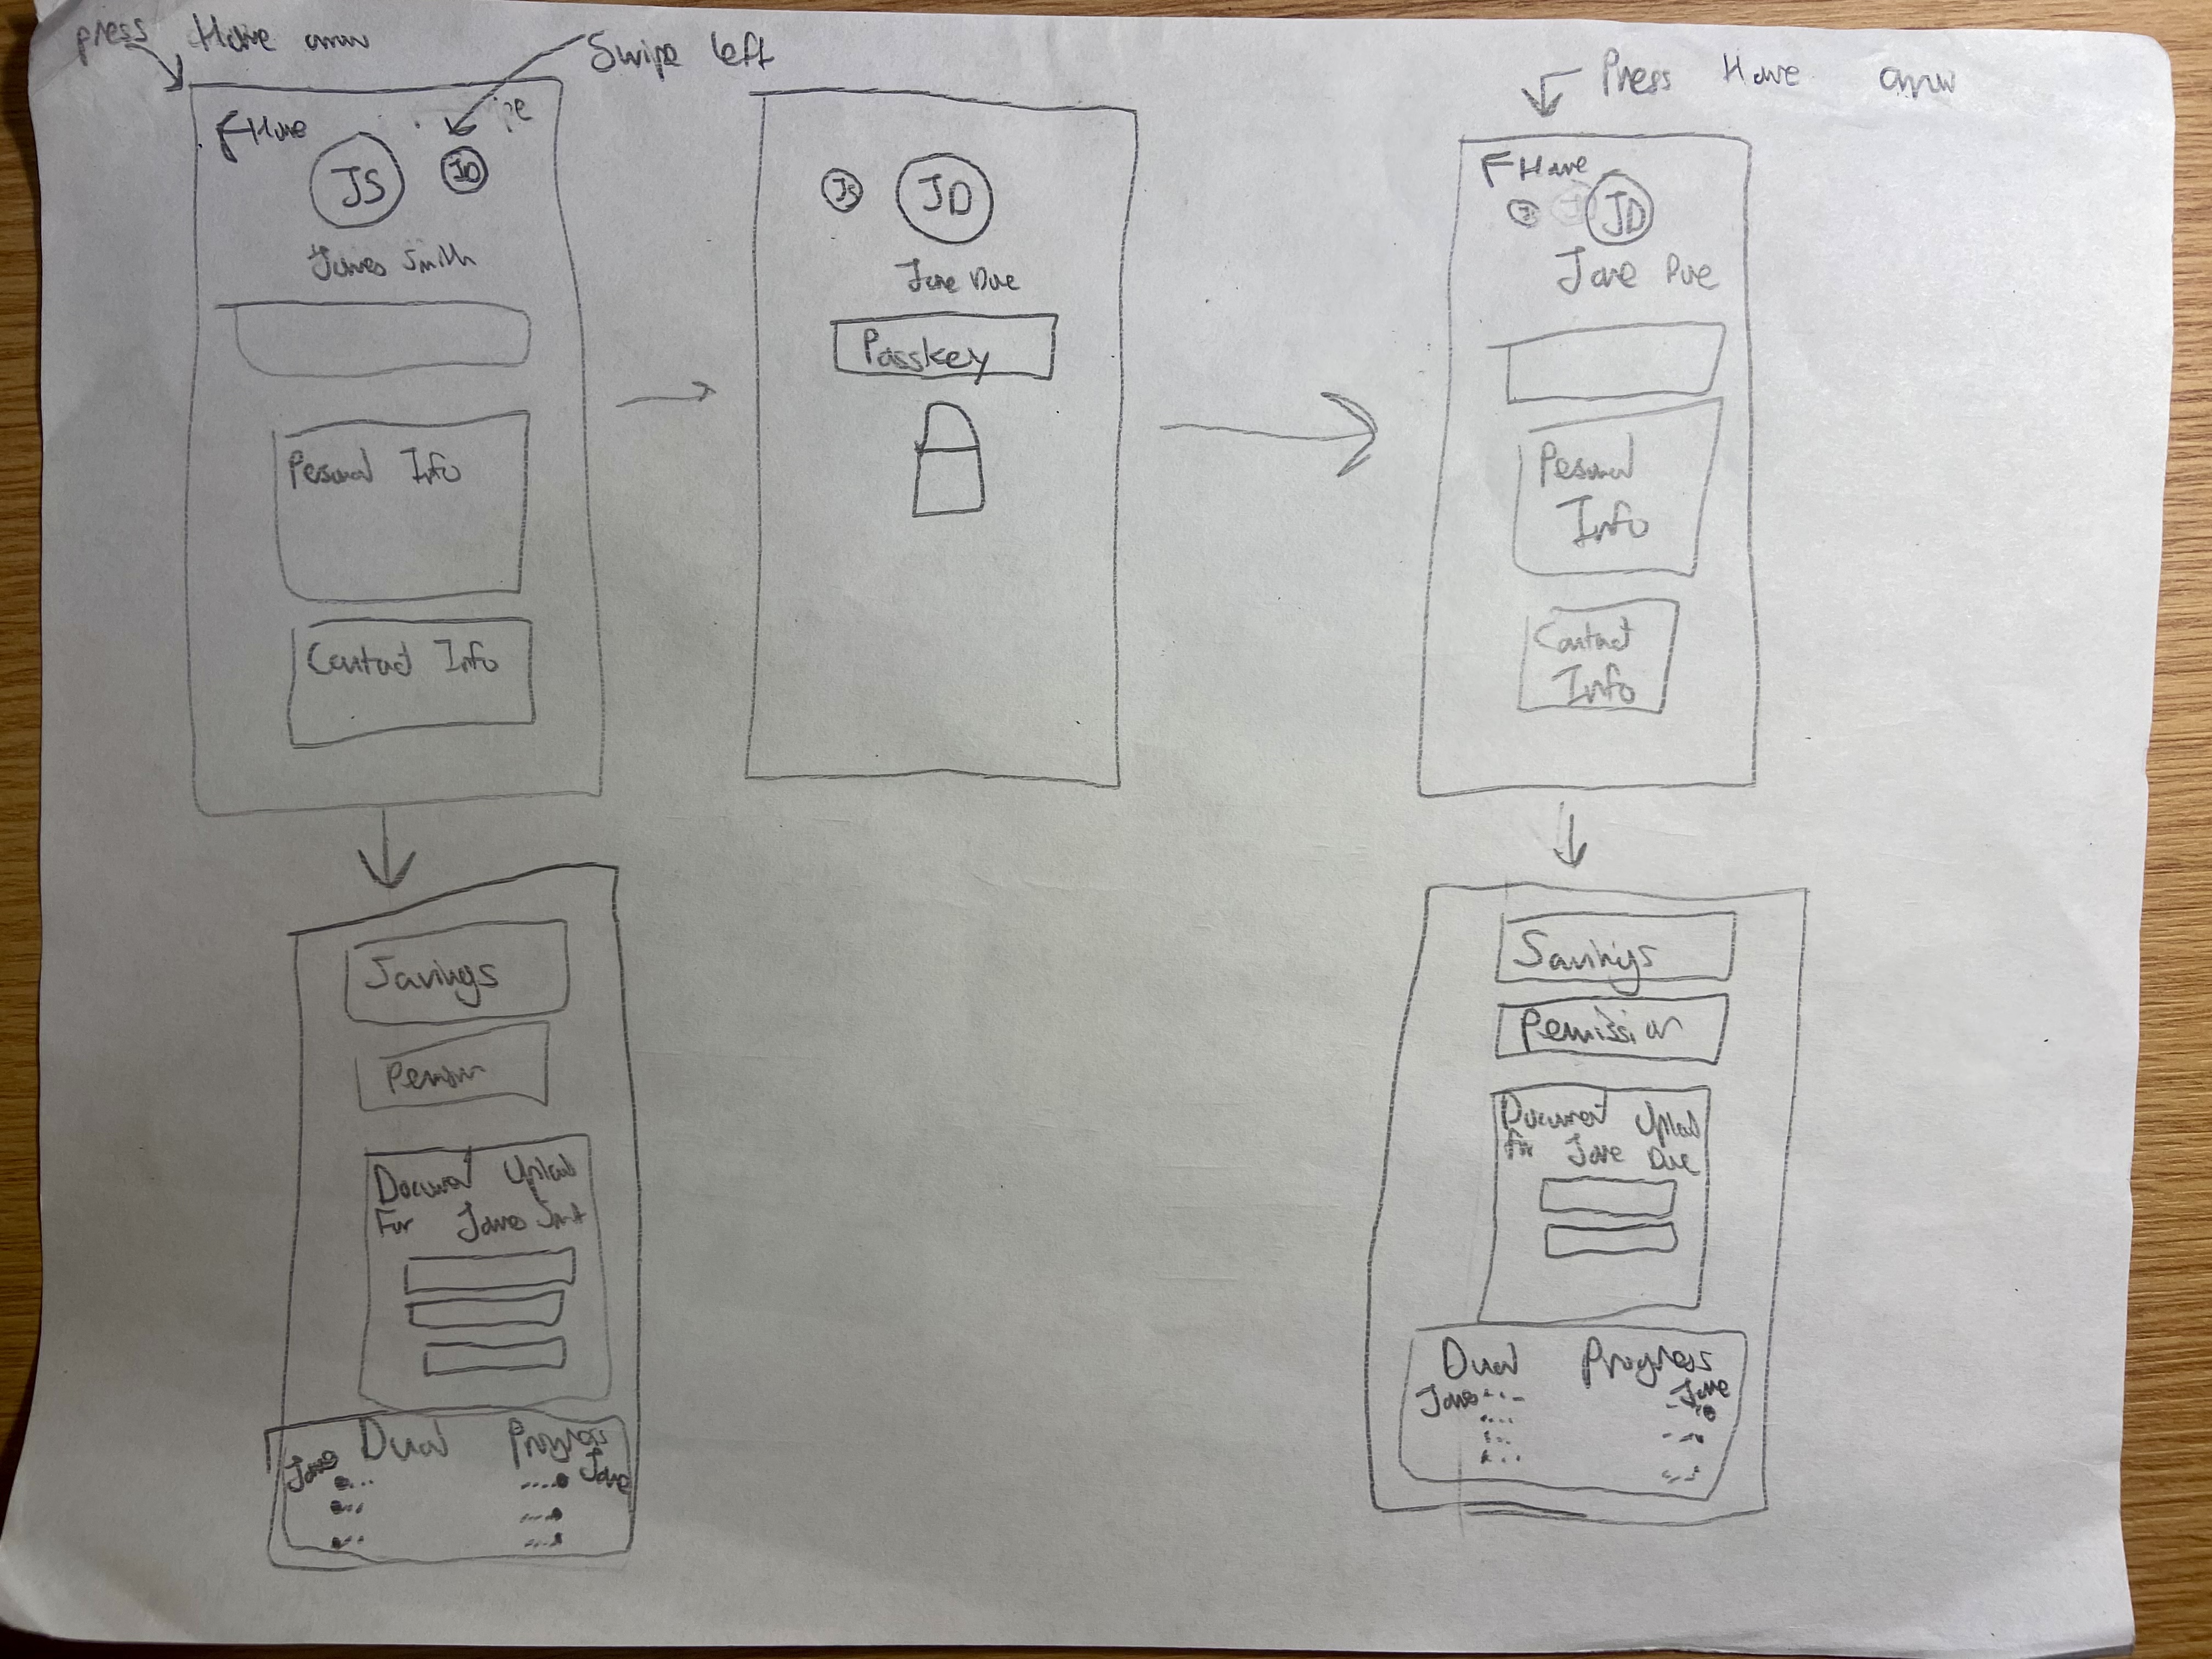 press Home arrow
Swipe left
Press Home arrow
Home
JS
JD
James Smith
Personal Info
Contact Info
JS
JD
Jane Doe
Passkey
Home
JD
Jane Doe
Personal
Info
Contact
Info
Savings
Document Upload
For James Smith
Dual Progress
James Jane
Savings
Permission
Document Upload
for Jane Doe
Dual Progress
James Jane